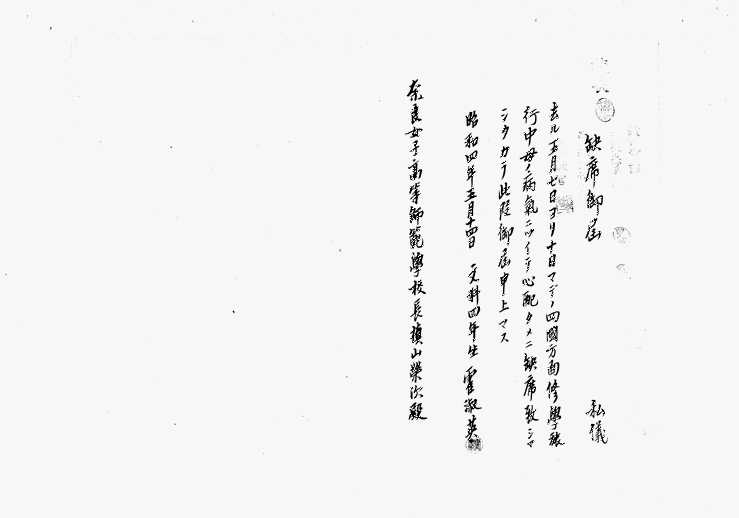 缺席御届
私儀
去ル五月七日ヨリ十日マデノ四國方面修學旅
行中母ノ病氣ニツイテ心配タメニ缺席致シマ
シタカラ此段御届申上マス
昭和四年五月十四日 文科四年生 霍淑英
奈良女子高等師範學校長槇山榮次殿